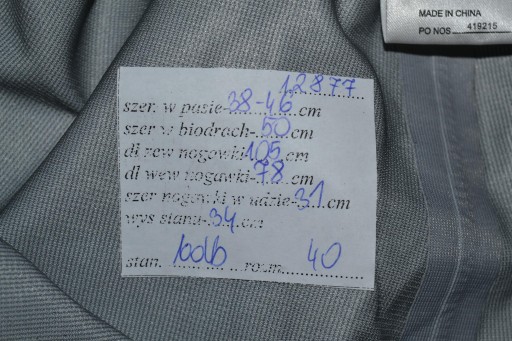 MADE IN CHINA
PO NOS 419215
12877
szer. w pasie-38-46 cm
szer w biodrach-50 cm
dl zew nogawki 105 cm
dl wew nogawki-78 cm
szer nogawki w udzie-31 cm
wys stanu-34 cm
stan. bdb rozm. 40